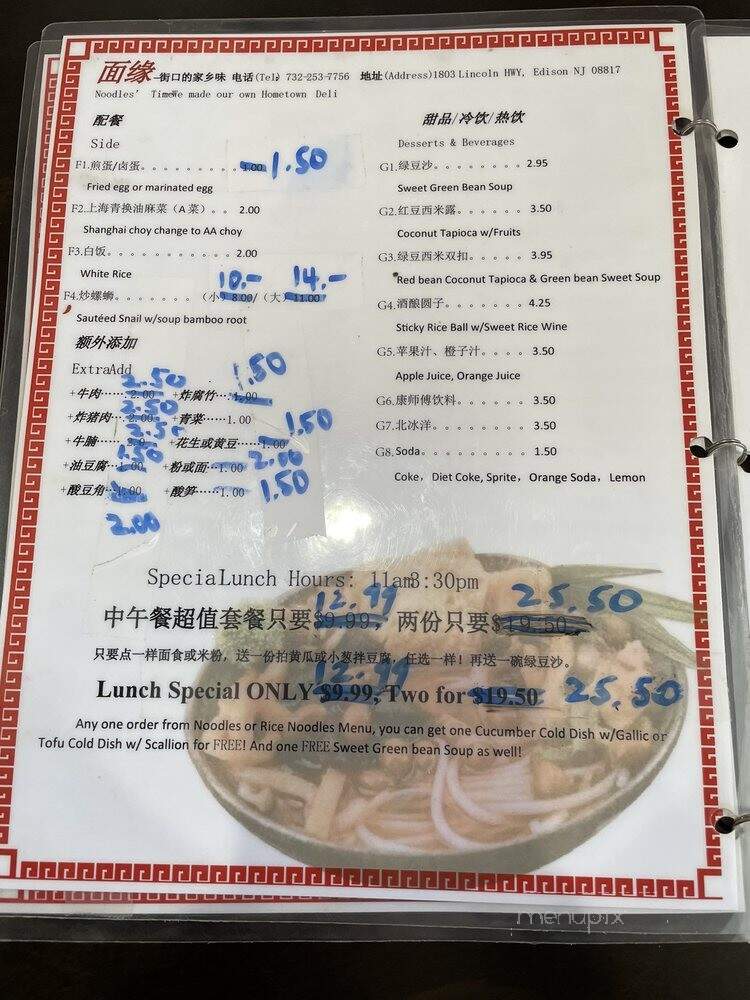 面缘—街口的家乡味 电话(Tel) 732-253-7756 地址(Address)1803 Lincoln HWY, Edison NJ 08817
Noodles' Time We made our own Hometown Deli
配餐
Side
F1.煎蛋/卤蛋. . . . . . . . . 1.00 1.50
Fried egg or marinated egg
F2.上海青换油麻菜（A 菜）. . 2.00
Shanghai choy change to AA choy
F3.白饭. . . . . . . . . . . 2.00
White Rice
10.- 14.-
F4.炒螺蛳. . . . . . . （小）8.00/（大）11.00
Sautéed Snail w/soup bamboo root
额外添加
ExtraAdd
2.50 1.50
+牛肉……2.00 +炸腐竹…1.00
2.50
+炸猪肉…2.00 +青菜……1.00
1.50
+牛腩……2.0 +花生或黄豆……1.00
1.50 2.00
+油豆腐…1.00 +粉或面…1.00
+酸豆角…1.00 +酸笋……1.00 1.50
2.00
甜品/冷饮/热饮
Desserts & Beverages
G1.绿豆沙. . . . . . . 2.95
Sweet Green Bean Soup
G2.红豆西米露. . . . . . 3.50
Coconut Tapioca w/Fruits
G3.绿豆西米双扣. . . . . 3.95
Red bean Coconut Tapioca & Green bean Sweet Soup
G4.酒酿圆子. . . . . . . 4.25
Sticky Rice Ball w/Sweet Rice Wine
G5.苹果汁、橙子汁. . . . 3.50
Apple Juice, Orange Juice
G6.康师傅饮料. . . . . . 3.50
G7.北冰洋. . . . . . . . 3.50
G8.Soda. . . . . . . . . 1.50
Coke，Diet Coke, Sprite，Orange Soda，Lemon
Special Lunch Hours: 11am3:30pm
12.99 25.50
中午餐超值套餐只要$9.99，两份只要$19.50
只要点一样面食或米粉，送一份拍黄瓜或小葱拌豆腐，任选一样！再送一碗绿豆沙。
12.99
Lunch Special ONLY $9.99, Two for $19.50 25.50
Any one order from Noodles or Rice Noodles Menu, you can get one Cucumber Cold Dish w/Gallic or
Tofu Cold Dish w/ Scallion for FREE! And one FREE Sweet Green bean Soup as well!
menupix